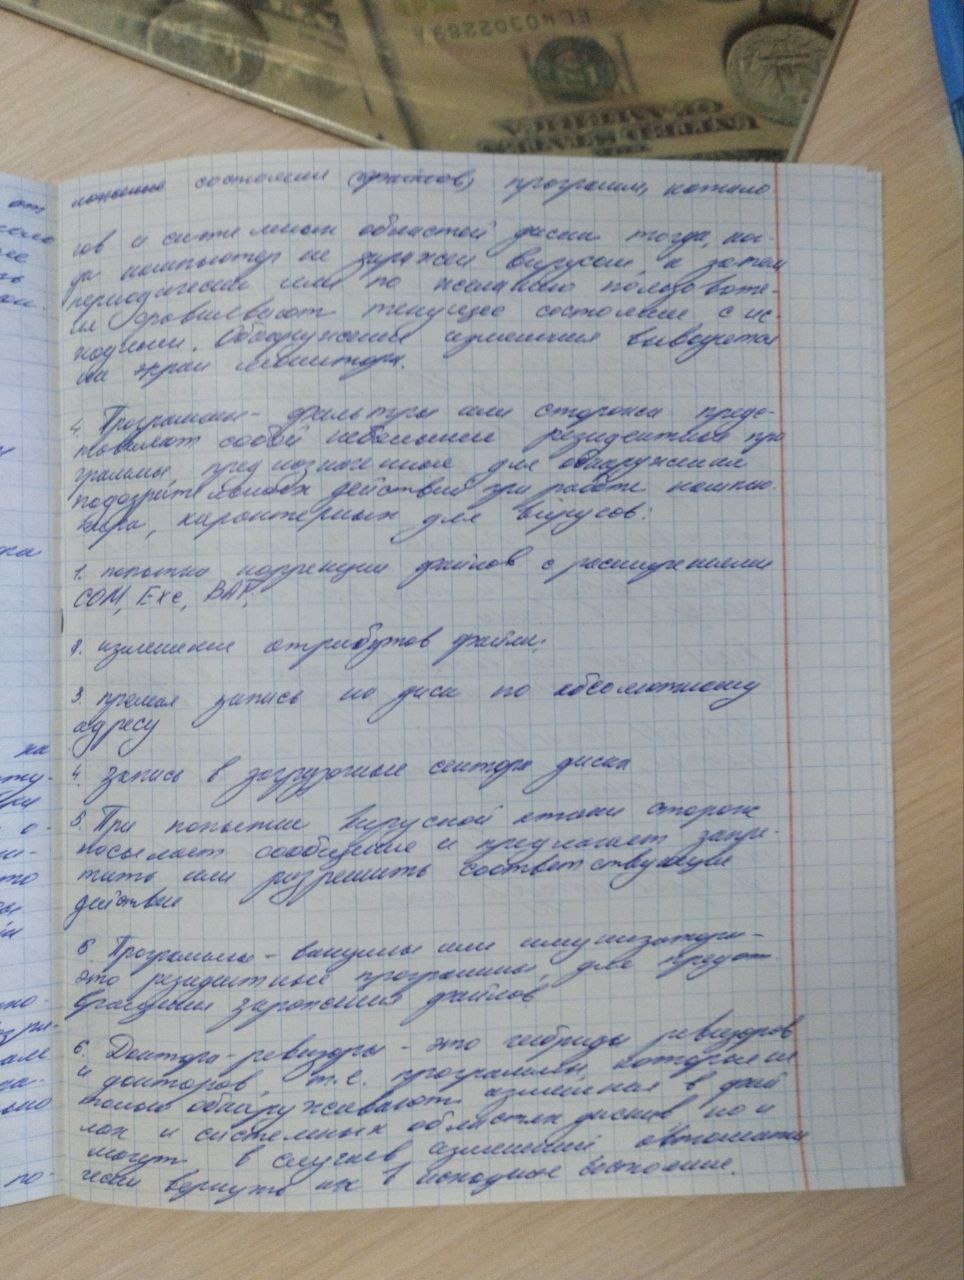 EL40302289
THE
UNITED STATES
OF AMERICA
состояния (файлов) программ, катало
гов и системных областей диска тогда, ко-
да компьютер не заражен вирусом, а затем
периодический или по желанию пользовате-
ля сравнивают текущее состояние с ис-
ходным. Обнаружения изменения выводятся
на экран монитора.
4. Программы - фильтры или сторожа предс-
тавляют собой небольшие резидентные про
граммы, предназначенные для обнаружения
подозрительных действий при работе компью
тера, характерных для вирусов:
1. попытка коррекции файлов с расширениями
COM, Exe, BAT;
2. изменение атрибутов файла;
3. прямая запись на диск по абсолютному
адресу
4. запись в загрузочные сектора диска
5. При попытке вирусной атаки сторож
посылает сообщение и предлагает запре-
тить или разрешить соответствующие
действия
5. Программы - вакцины или имунизаторы -
это резидентные программы, для предот
вращения заражения файлов
6. Доктора-ревизоры - это гибриды ревизоров
и докторов, т.е. программы, которые не
только обнаруживают изменения в фай
лах и системных областях дисков но и
могут в случаев изменений автомати
чески вернуть их в исходное состояние.
от
ее
ам
ка
на
ту-
о-
но-
ам
но
по-